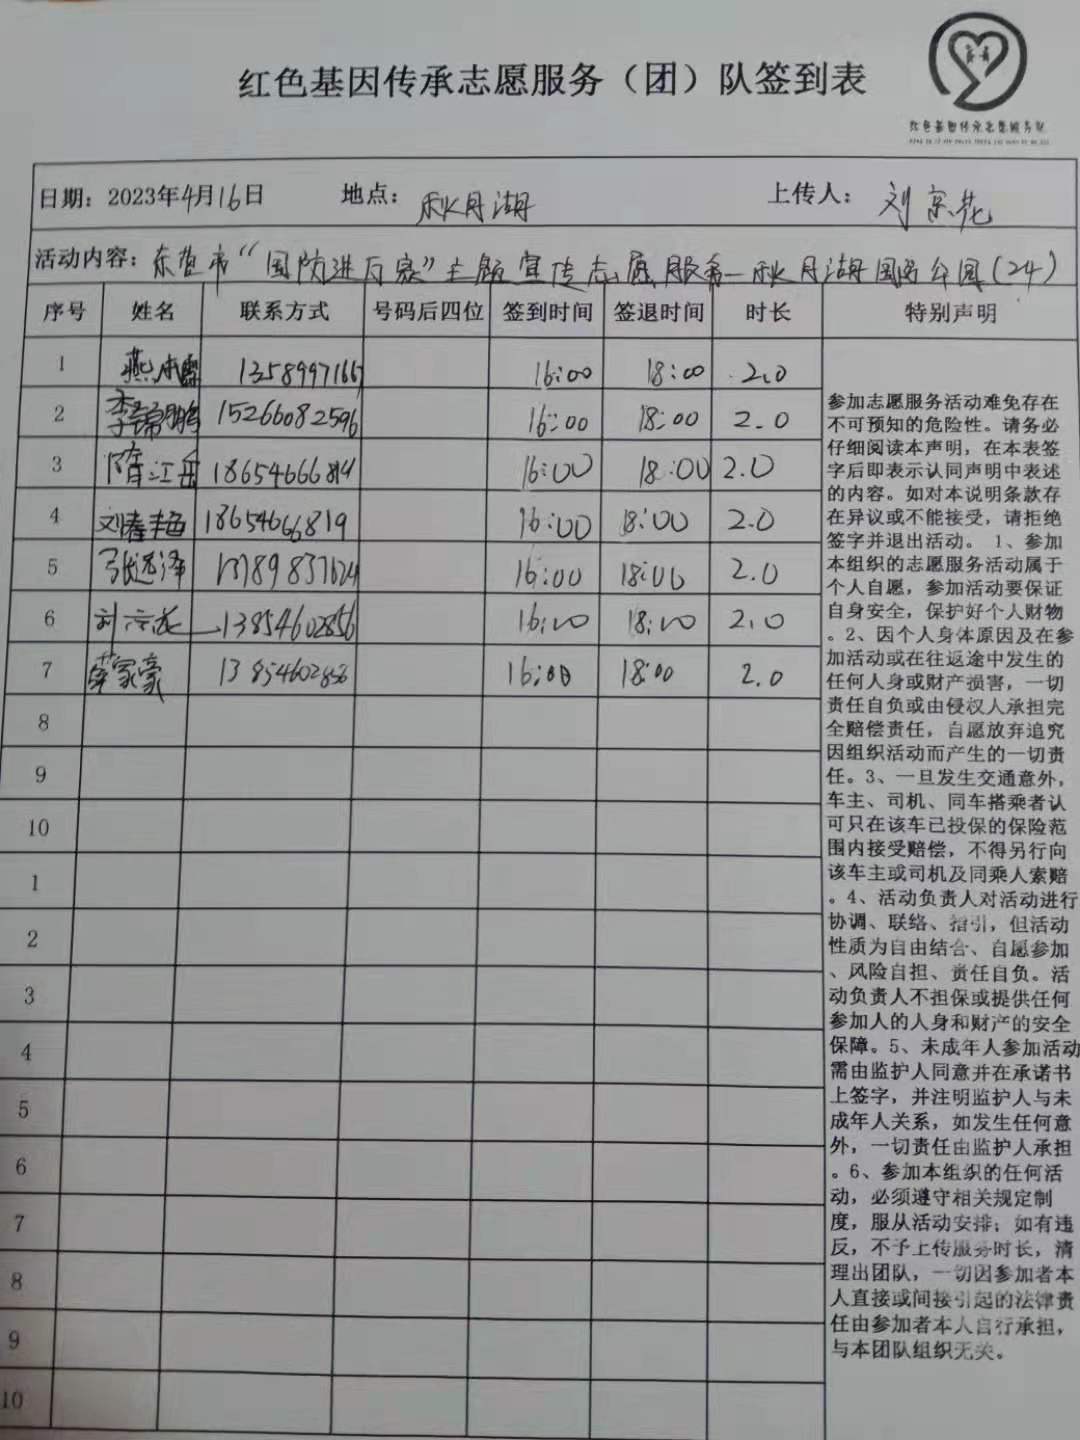 红色基因传承志愿服务（团）队签到表
红色基因传承志愿服务队
日期：2023年4月16日 地点：秋月湖 上传人：刘京花
活动内容：东营市“国防进万家”主题宣传志愿服务—秋月湖国防公园(24)
序号 姓名 联系方式 号码后四位 签到时间 签退时间 时长 特别声明
1 燕 1358997166 16:00 18:00 2.0
2 李锦鹏 15266082596 16:00 18:00 2.0
3 隋江岳 18654666819 16:00 18:00 2.0
4 刘春艳 18654666819 16:00 18:00 2.0
5 张远泽 13789837624 16:00 18:00 2.0
6 刘京花 13854602856 16:00 18:00 2.0
7 荣家豪 13854602856 16:00 18:00 2.0
8
9
10
1
2
3
4
5
6
7
8
9
10
参加志愿服务活动难免存在
不可预知的危险性。请务必
仔细阅读本声明，在本表签
字后即表示认同声明中表述
的内容。如对本说明条款存
在异议或不能接受，请拒绝
签字并退出活动。 1、参加
本组织的志愿服务活动属于
个人自愿，参加活动要保证
自身安全，保护好个人财物
。2、因个人身体原因及在参
加活动或在往返途中发生的
任何人身或财产损害，一切
责任自负或由侵权人承担完
全赔偿责任，自愿放弃追究
因组织活动而产生的一切责
任。3、一旦发生交通意外，
车主、司机、同车搭乘者认
可只在该车已投保的保险范
围内接受赔偿，不得另行向
该车主或司机及同乘人索赔
。4、活动负责人对活动进行
协调、联络、指引，但活动
性质为自由结合、自愿参加
、风险自担、责任自负。活
动负责人不担保或提供任何
参加人的人身和财产的安全
保障。5、未成年人参加活动
需由监护人同意并在承诺书
上签字，并注明监护人与未
成年人关系，如发生任何意
外，一切责任由监护人承担
。6、参加本组织的任何活
动，必须遵守相关规定制
度，服从活动安排；如有违
反，不予上传服务时长，清
理出团队，一切因参加者本
人直接或间接引起的法律责
任由参加者本人自行承担，
与本团队组织无关。